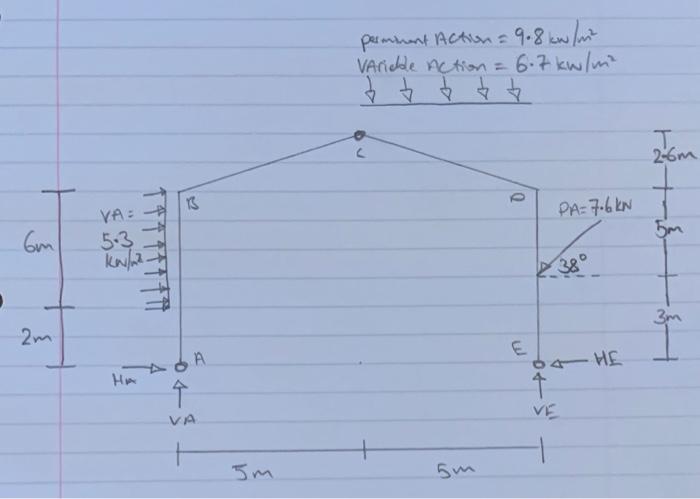 permanent Action = 9.8 kw/m²
VAriable Action = 6.7 kw/m²
C
2.6m
B
D
PA = 7.6 kN
VA =
5.3
kN/m²
6m
5m
38°
2m
3m
A
E
HA
HE
VA
VE
5m
5m